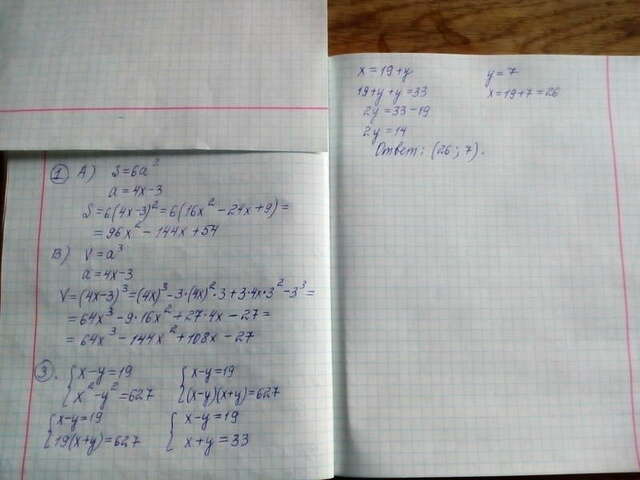 ① А) S=6a²
a=4x-3
S=6(4x-3)²=6(16x²-24x+9)=
=96x²-144x+54
В) V=a³
a=4x-3
V=(4x-3)³=(4x)³-3·(4x)²·3+3·4x·3²-3³=
=64x³-9·16x²+27·4x-27=
=64x³-144x²+108x-27
③. {x-y=19 {x-y=19
{x²-y²=627 {(x-y)(x+y)=627
{x-y=19 {x-y=19
{19(x+y)=627 {x+y=33
x=19+y y=7
19+y+y=33 x=19+7=26
2y=33-19
2y=14
Ответ: (26; 7).